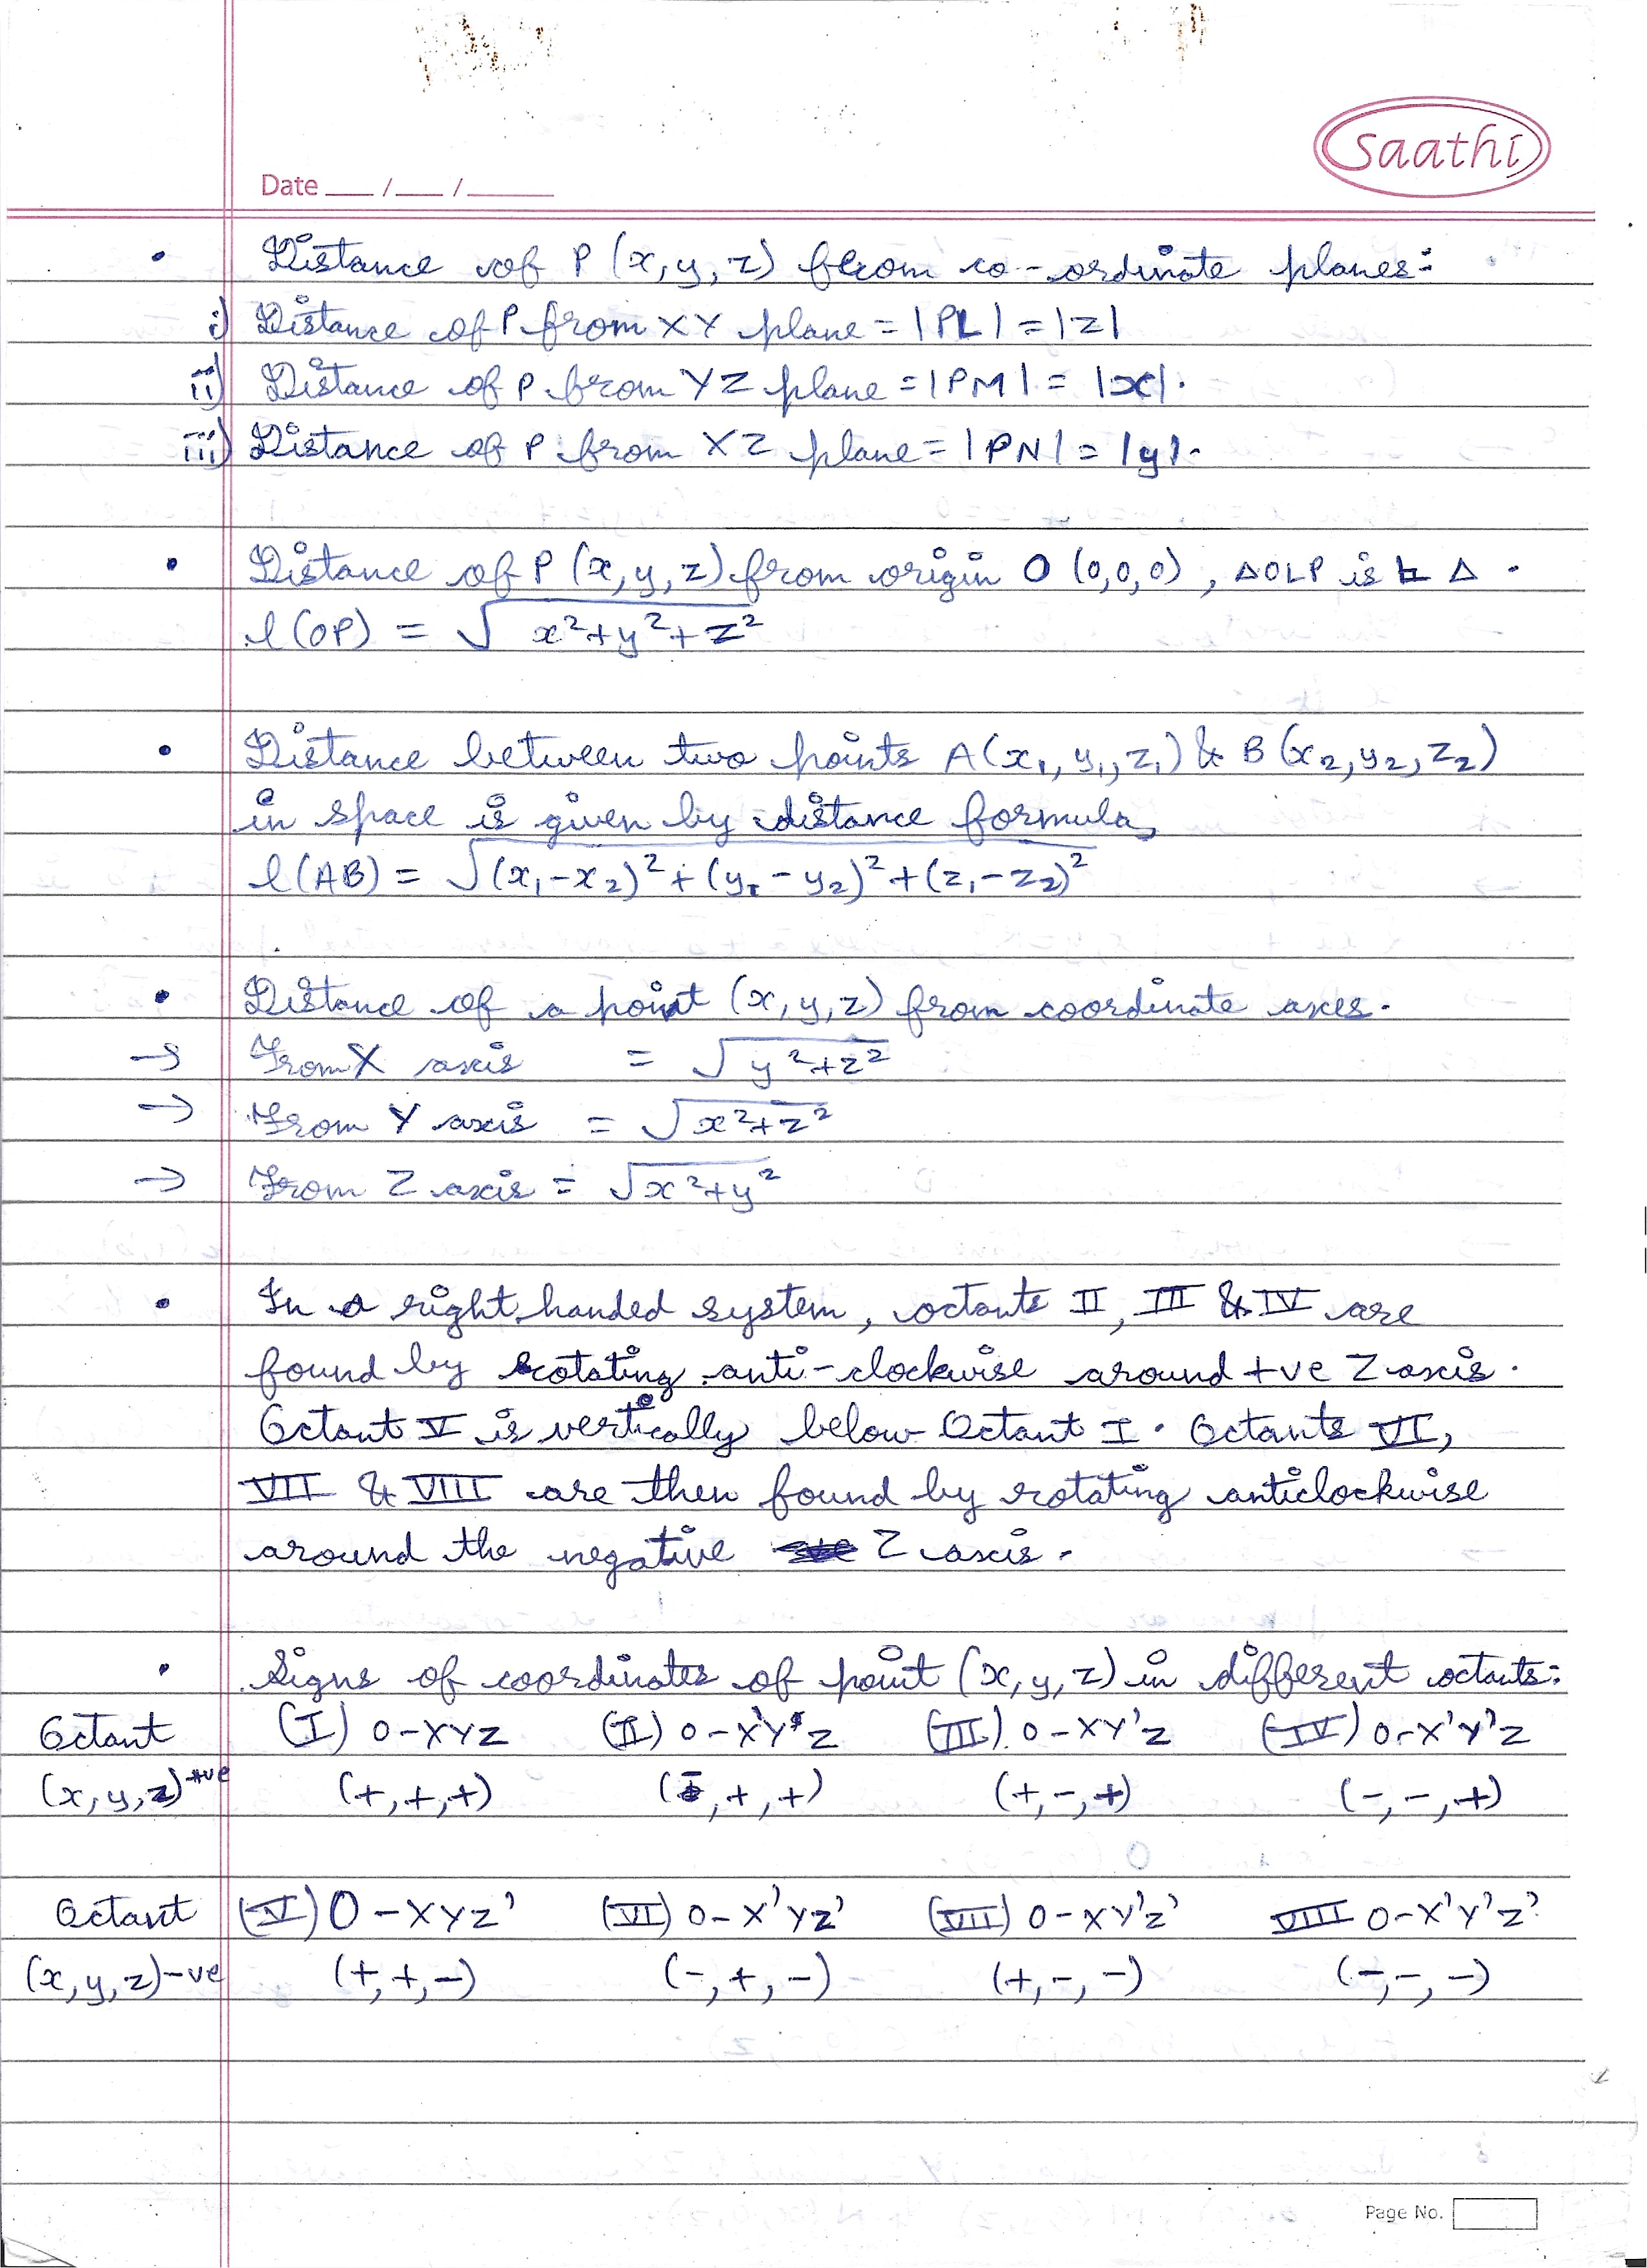 Saathi
Date ___ / ___ / _____
• Distance of P (x, y, z) from co-ordinate planes:
i) Distance of P from XY plane = |PL| = |z|
ii) Distance of P from YZ plane = |PM| = |x|.
iii) Distance of P from XZ plane = |PN| = |y|.
• Distance of P (x, y, z) from origin O (0,0,0), ΔOLP is ⊾ Δ.
l(OP) = √x²+y²+z²
• Distance between two points A(x₁, y₁, z₁) & B(x₂, y₂, z₂)
in space is given by distance formula,
l(AB) = √(x₁-x₂)²+(y₁-y₂)²+(z₁-z₂)²
• Distance of a point (x, y, z) from coordinate axes.
→ From X axis = √y²+z²
→ From Y axis = √x²+z²
→ From Z axis = √x²+y²
• In a right handed system, octants II, III & IV are
found by rotating anti-clockwise around +ve Z axis.
Octant V is vertically below Octant I. Octants VI,
VII & VIII are then found by rotating anticlockwise
around the negative Z axis.
• Signs of coordinates of point (x, y, z) in different octants:
Octant (I) O-XYZ (II) O-X'Y'Z (III) O-XY'Z (IV) O-X'Y'Z
(x, y, z)+ve (+,+,+) (-,+,+) (+,-,+) (-,-,+)
Octant (V) O-XYZ' (VI) O-X'YZ' (VII) O-XY'Z' VIII O-X'Y'Z'
(x, y, z)-ve (+,+,-) (-,+,-) (+,-,-) (-,-,-)
Page No.